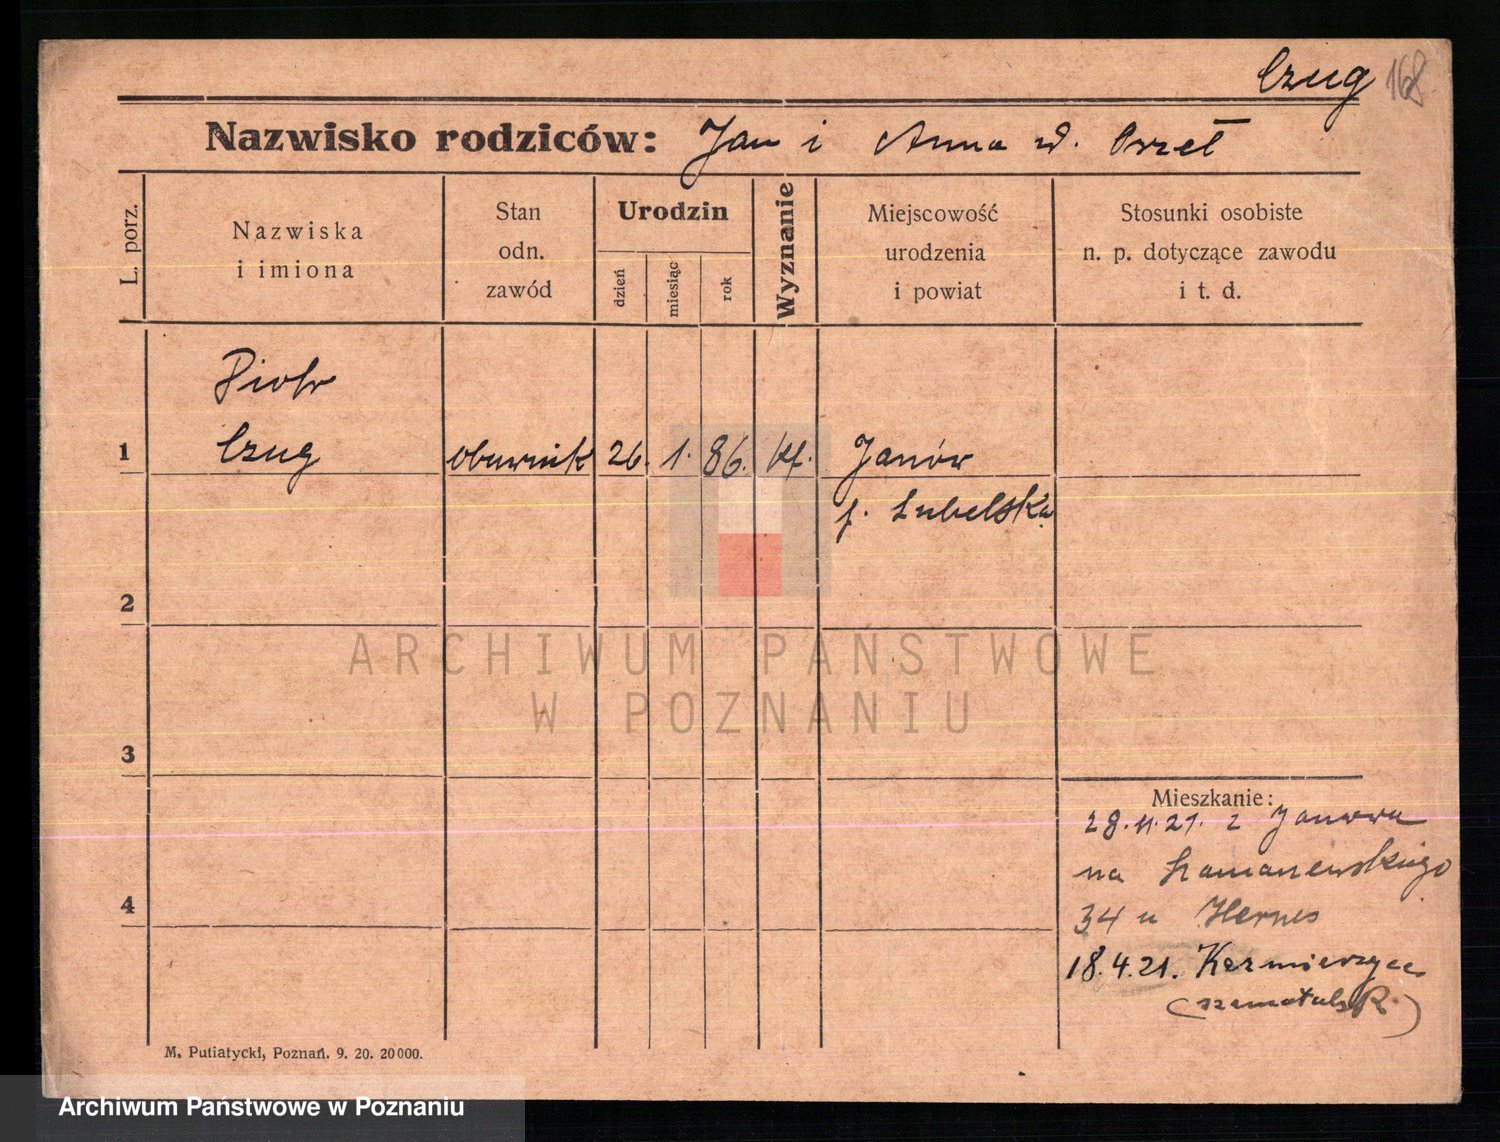 Czug 168
Nazwisko rodziców: Jan i Anna d. Orzeł
L. porz.
Nazwiska
i imiona
Stan
odn.
zawód
Urodzin
dzień
miesiąc
rok
Wyznanie
Miejscowość
urodzenia
i powiat
Stosunki osobiste
n. p. dotyczące zawodu
i t. d.
Piotr
1 Czug obuwnik 26. 1. 86. kt. Janów
Lubelska
2
3
4
Mieszkanie:
28.11.21. z Janowa
na Szamarzewskiego
34 u
18.4.21.
M. Putiatycki, Poznań. 9. 20. 20000.
ARCHIWUM PAŃSTWOWE
W POZNANIU
Archiwum Państwowe w Poznaniu